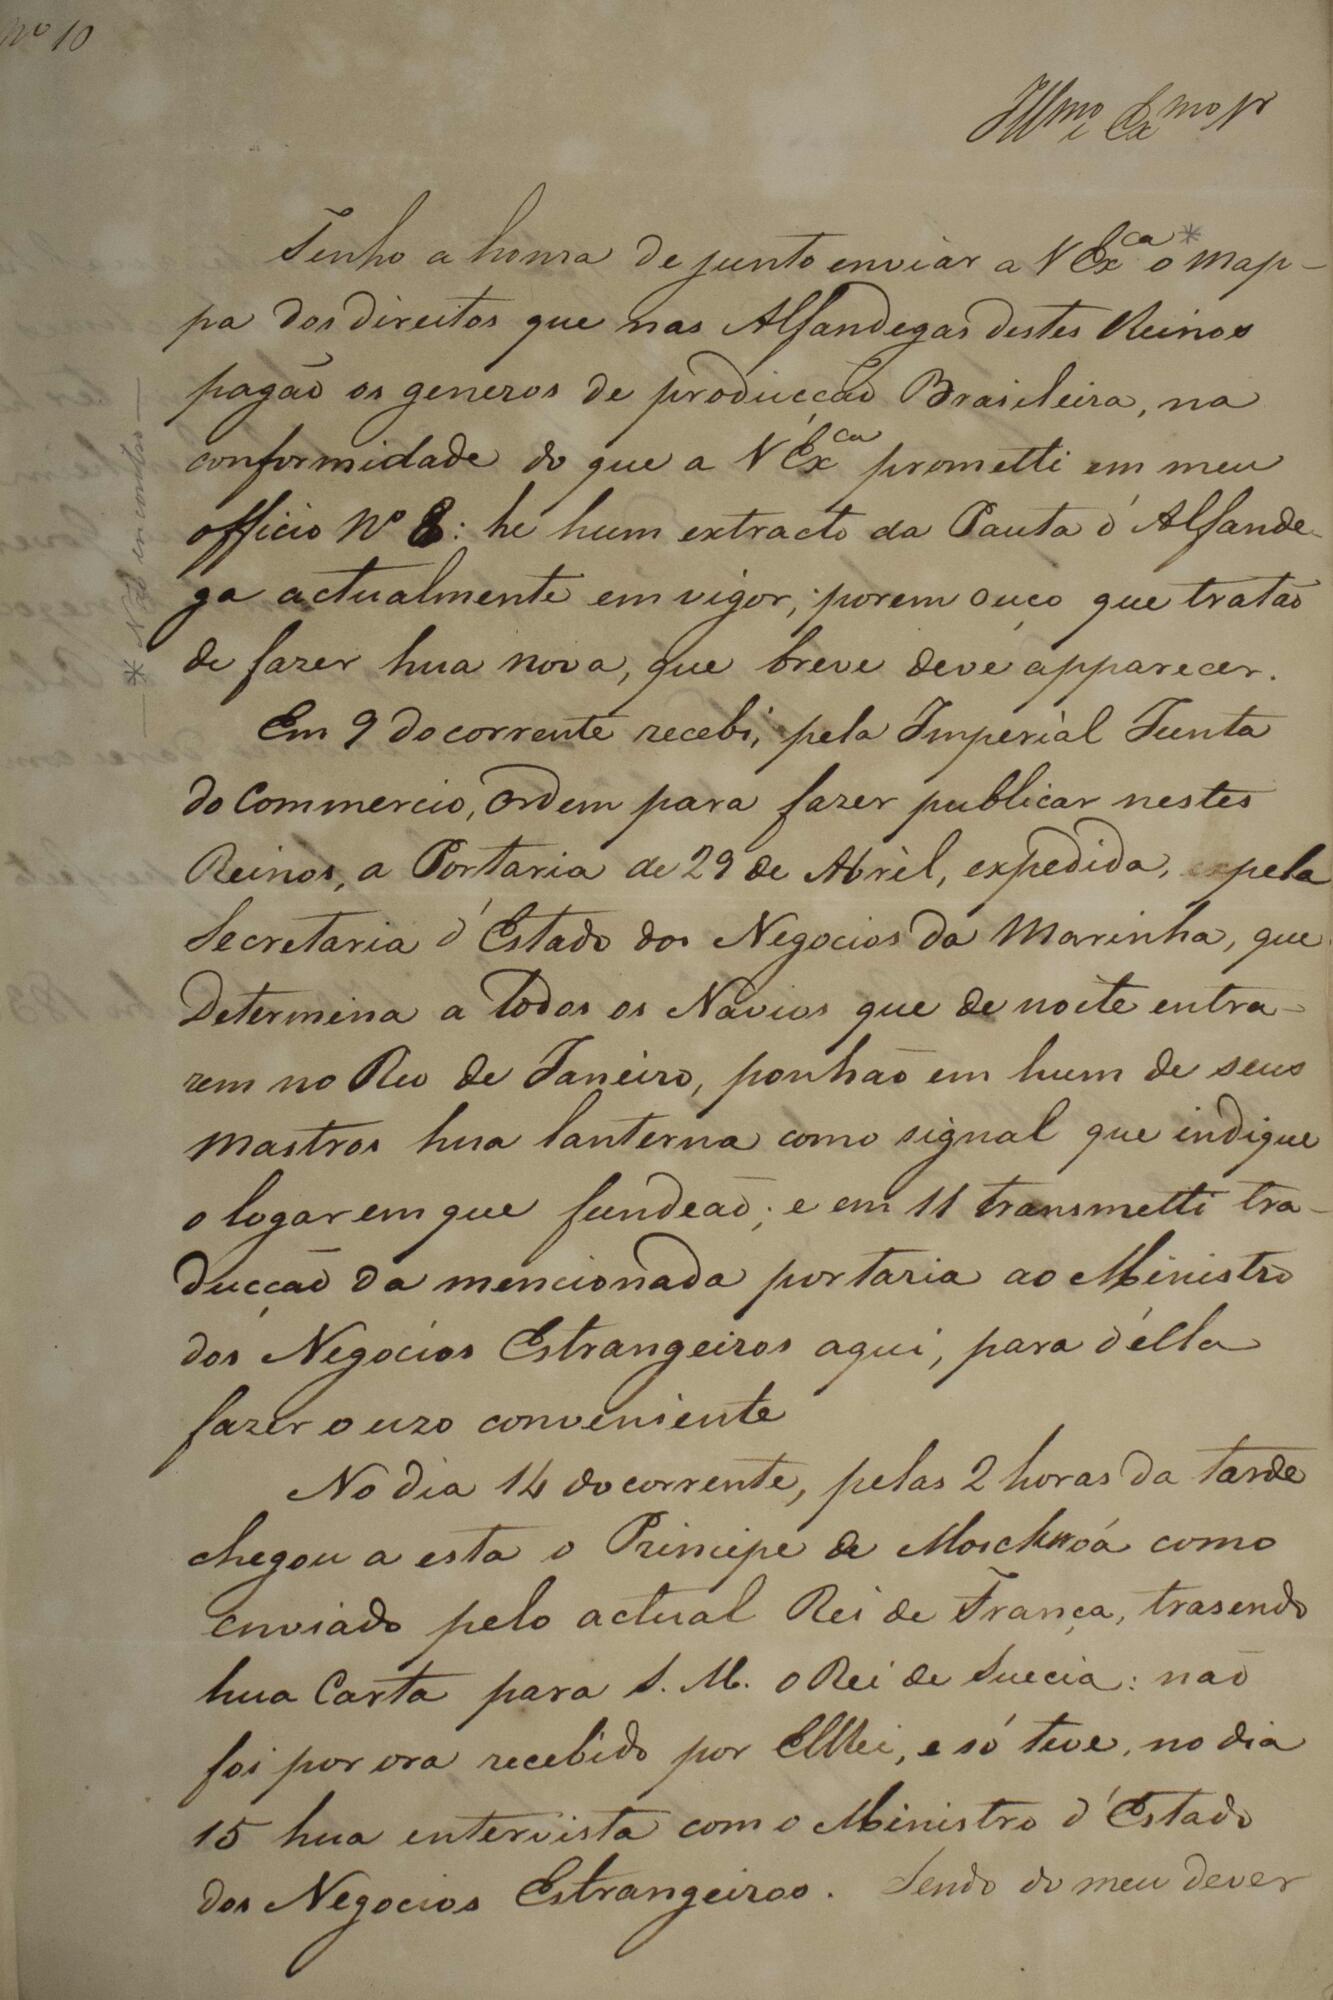 Nº 10
Illmo e Exmo Sr
Tenho a honra de junto enviar a V Exca * o map-
pa dos direitos que nas Alfandegas destes Reinos
pagão os generos de producção Brasileira, na
conformidade do que a V Exca prometti em meu
officio Nº 8: he hum extracto da Pauta d'Alfande-
ga actualmente em vigor; porem ouço que tratão
de fazer hua nova, que breve deve apparecer.
* Não encontrei
Em 9 do corrente recebi, pela Imperial Junta
do Commercio, ordem para fazer publicar nestes
Reinos, a Portaria de 29 de Abril, expedida, pela
Secretaria d'Estado dos Negocios da Marinha, que
Determina a todos os Navios que de noite entra-
rem no Rio de Janeiro, ponhão em hum de seus
Mastros hua lanterna como signal que indique
o logar em que fundeão; e em 11 transmetti tra-
ducção da mencionada portaria ao Ministro
dos Negocios Estrangeiros aqui, para d'élla
fazer o uzo conveniente
No dia 14 do corrente, pelas 2 horas da tarde
chegou a esta o Principe de Moschwoá como
enviado pelo actual Rei de França, trasendo
hua Carta para S. M. o Rei de Suecia: não
foi por ora recebido por ElRei, e só teve, no dia
15 hua entervista com o Ministro d'Estado
dos Negocios Estrangeiros. Sendo do meu dever